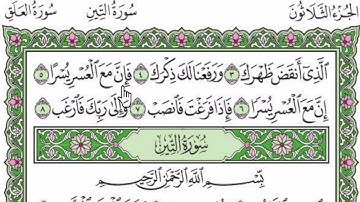 الجزء الثلاثون سورة التين سورة العلق
الَّذِي أَنقَضَ ظَهْرَكَ ٣ وَرَفَعْنَا لَكَ ذِكْرَكَ ٤ فَإِنَّ مَعَ الْعُسْرِ يُسْرًا ٥
إِنَّ مَعَ الْعُسْرِ يُسْرًا ٦ فَإِذَا فَرَغْتَ فَانصَبْ ٧ وَإِلَىٰ رَبِّكَ فَارْغَب ٨
سُورَةُ التِّينِ
بِسْمِ اللَّهِ الرَّحْمَٰنِ الرَّحِيمِ